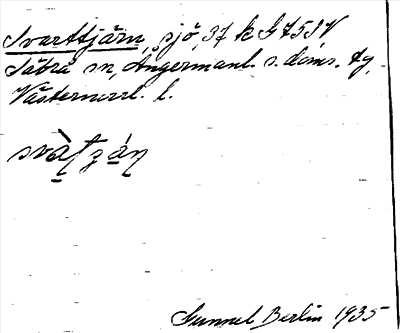 Svarttjärn, sjö, 37 k G 753 V
Säbrå sn, Ångermanl. s. doms. tg,
Västernorrl. l.
svàtzán
Gunnel Berlin 1935